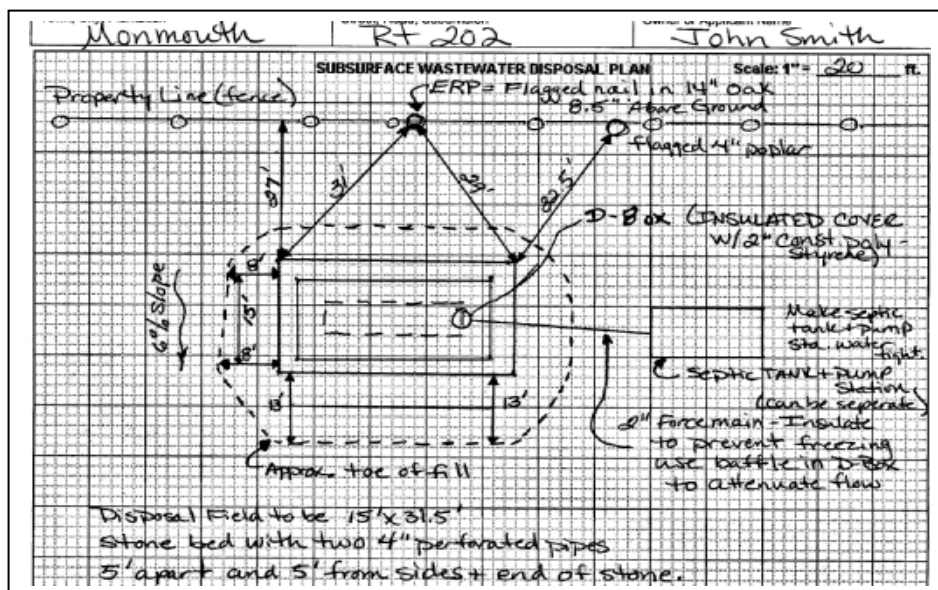 Monmouth Rt 202 John Smith
SUBSURFACE WASTEWATER DISPOSAL PLAN Scale: 1" = 20 ft.
Property Line (fence)
ERP = Flagged nail in 14" oak
8.5" Above Ground
flagged 4" poplar
27'
31'
29'
32.5'
D-Box (INSULATED COVER
W/ 2" Const. poly-
styrene)
6% Slope
8'
15'
8'
Make septic
tank + pump
sta. water
tight.
SEPTIC TANK + PUMP
Station
(can be seperate)
13'
13'
2" Forcemain - Insulate
to prevent freezing
use baffle in D-Box
to attenuate flow
Approx. toe of fill
Disposal Field to be 15' x 31.5'
Stone bed with two 4" perforated pipes
5' apart and 5' from sides + end of stone.